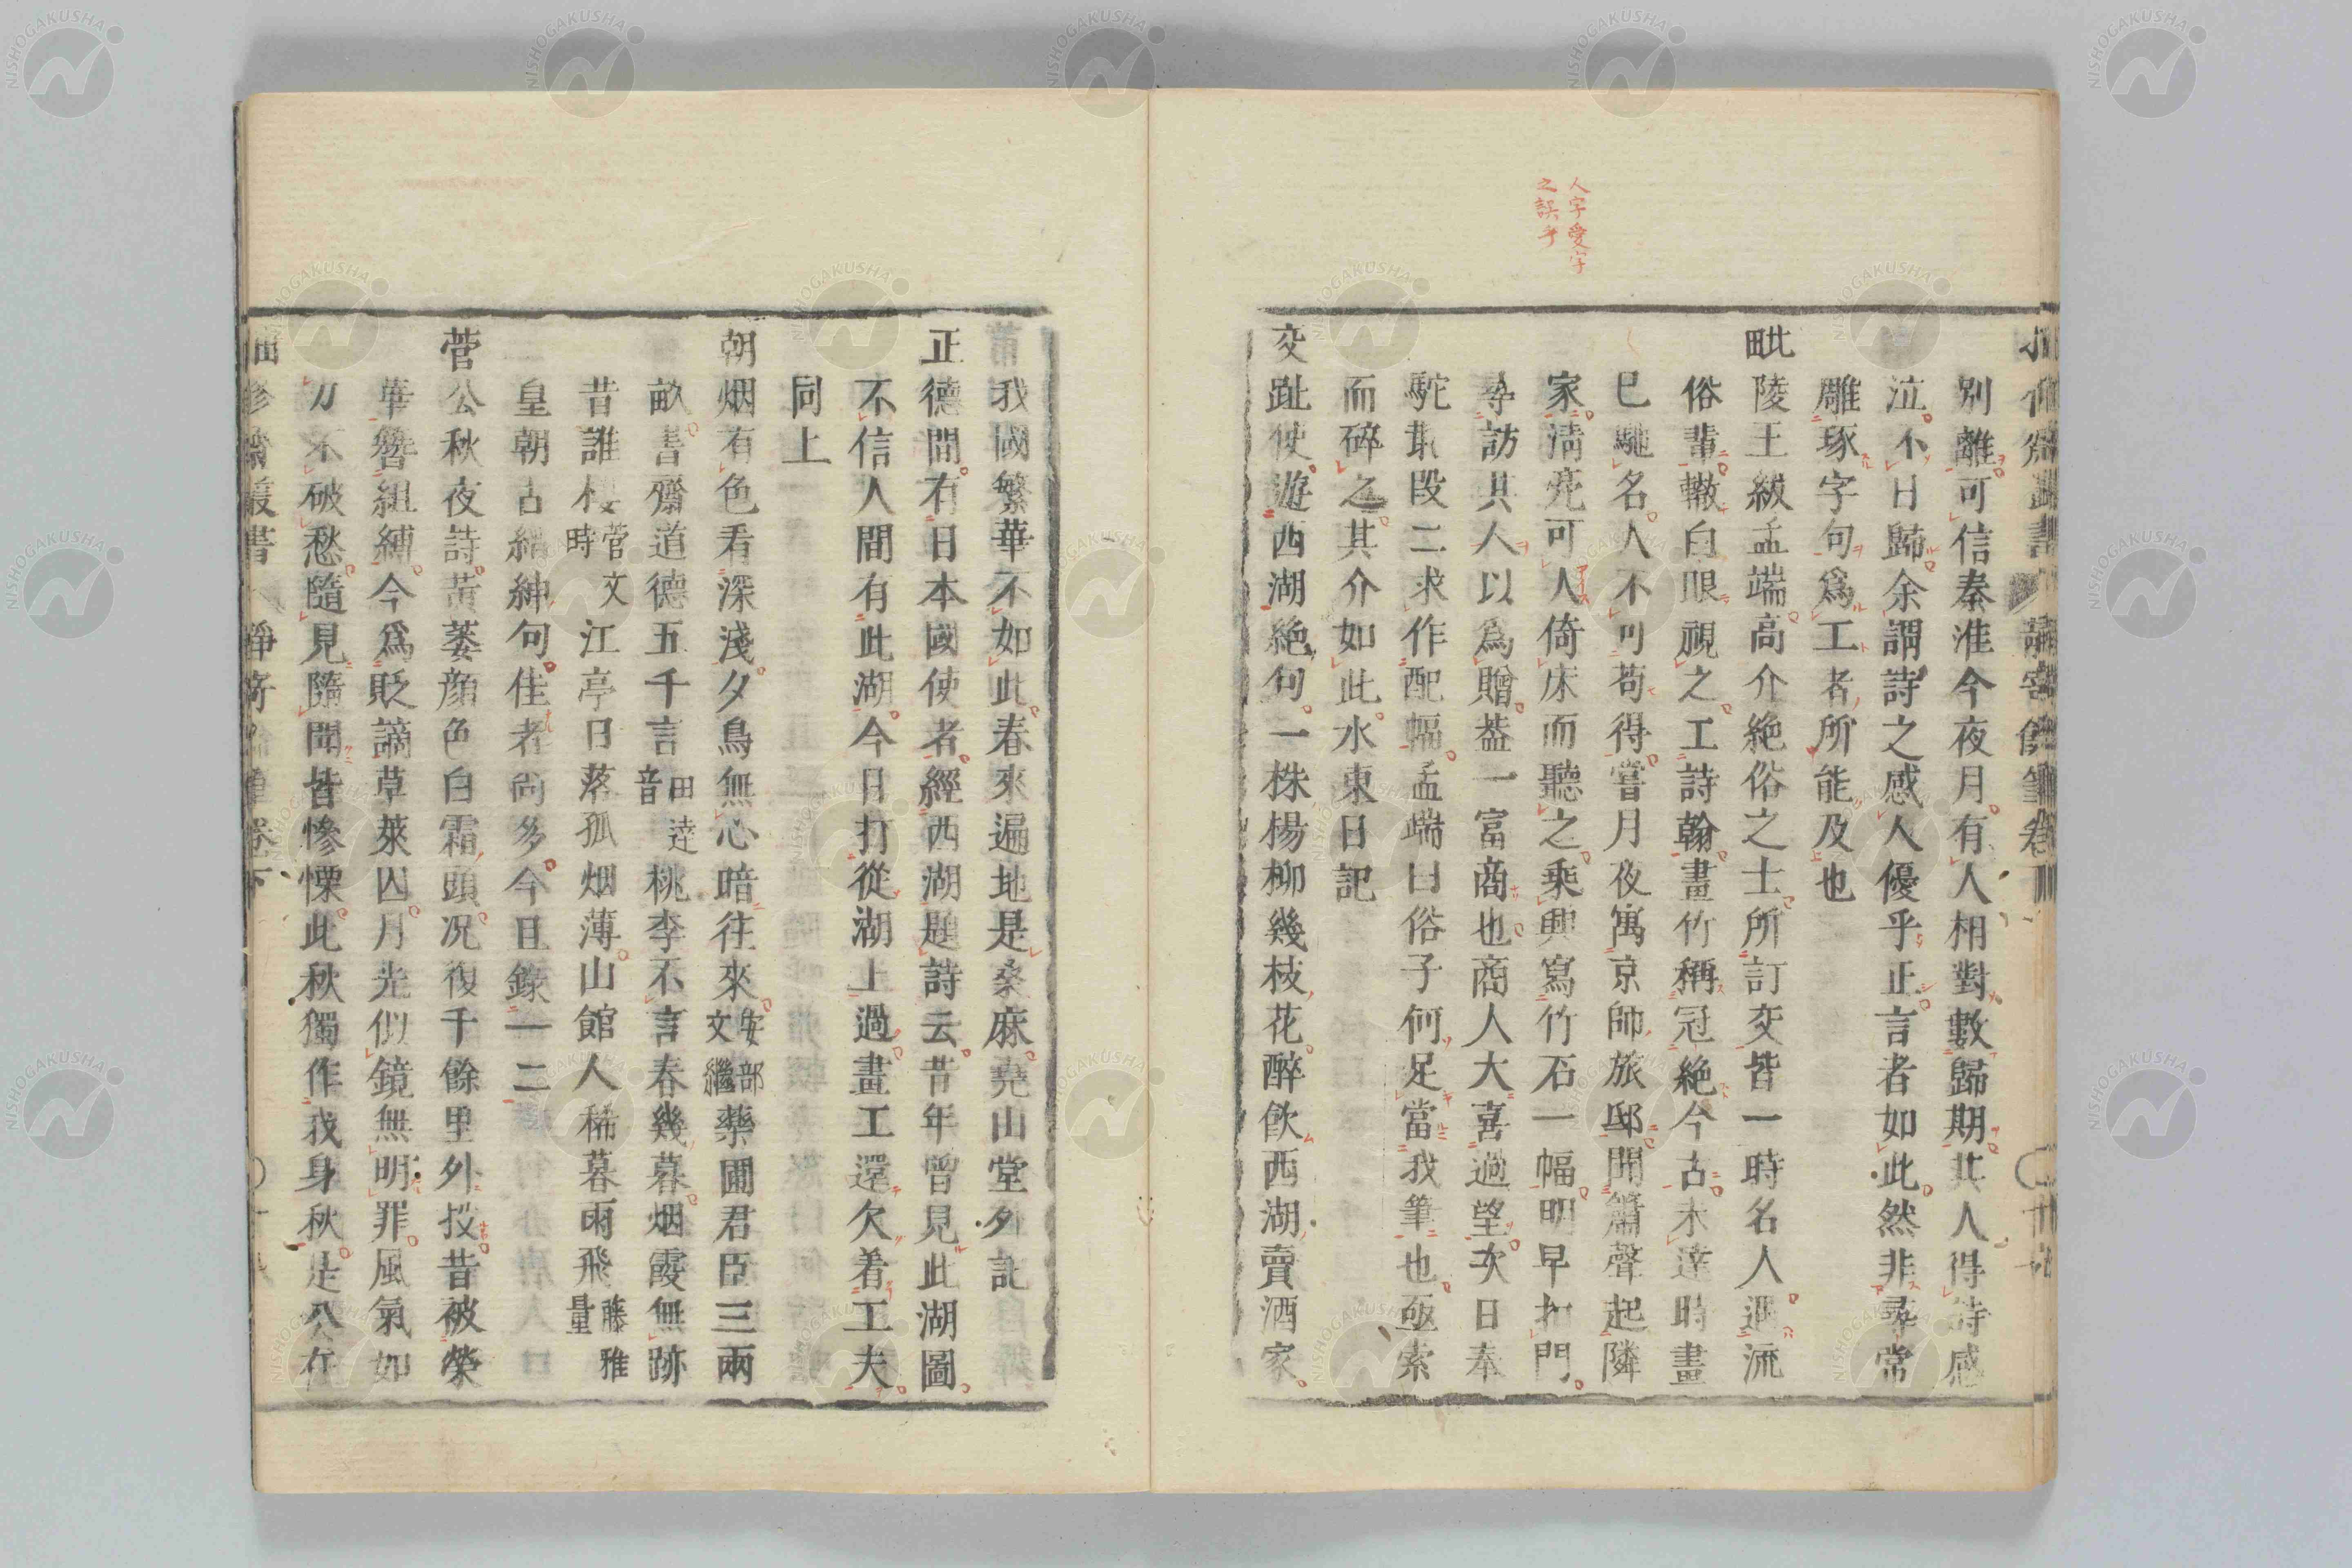 人字愛字
之誤乎
別離可信秦淮今夜月有人相對數歸期其人得詩感
泣不日歸余謂詩之感人優乎正言者如此然非尋常
雕琢字句爲工者所能及也
毗陵王紱孟端高介絶俗之士所訂交皆一時名人遇流
俗輩輙白眼視之工詩翰畫竹稱冠絶今古未達時畫
已馳名人不可苟得嘗月夜寓京師旅邸聞簫聲起隣
家淸亮可人倚床而聽之乘興寫竹石一幅明早扣門
尋訪其人以爲贈葢一富商也商人大喜過望次日奉
駝段二求作配幅孟端曰俗子何足當我筆也亟索
而碎之其介如此水東日記
交趾使遊西湖絶句一株楊柳幾枝花醉飮西湖賣酒家
我國繁華不如此春來遍地是桑麻堯山堂外記
正德間有日本國使者經西湖題詩云昔年曾見此湖圖
不信人間有此湖今日打從湖上過畫工還欠着工夫
同上
朝烟有色看深淺夕鳥無心暗往來安部文繼藥圃君臣三兩
畝書齋道德五千言田逵音桃李不言春幾暮烟霞無跡
昔誰棲菅文時江亭日落孤烟薄山館人稀暮雨飛藤雅量
皇朝古縉紳句佳者尚多今且錄一二
菅公秋夜詩黃萎顔色白霜頭况復千餘里外投昔被榮
華簪組縛今爲貶謫草萊囚月光似鏡無明罪風氣如
刀不破愁隨見隨聞皆慘慄此秋獨作我身秋是公在